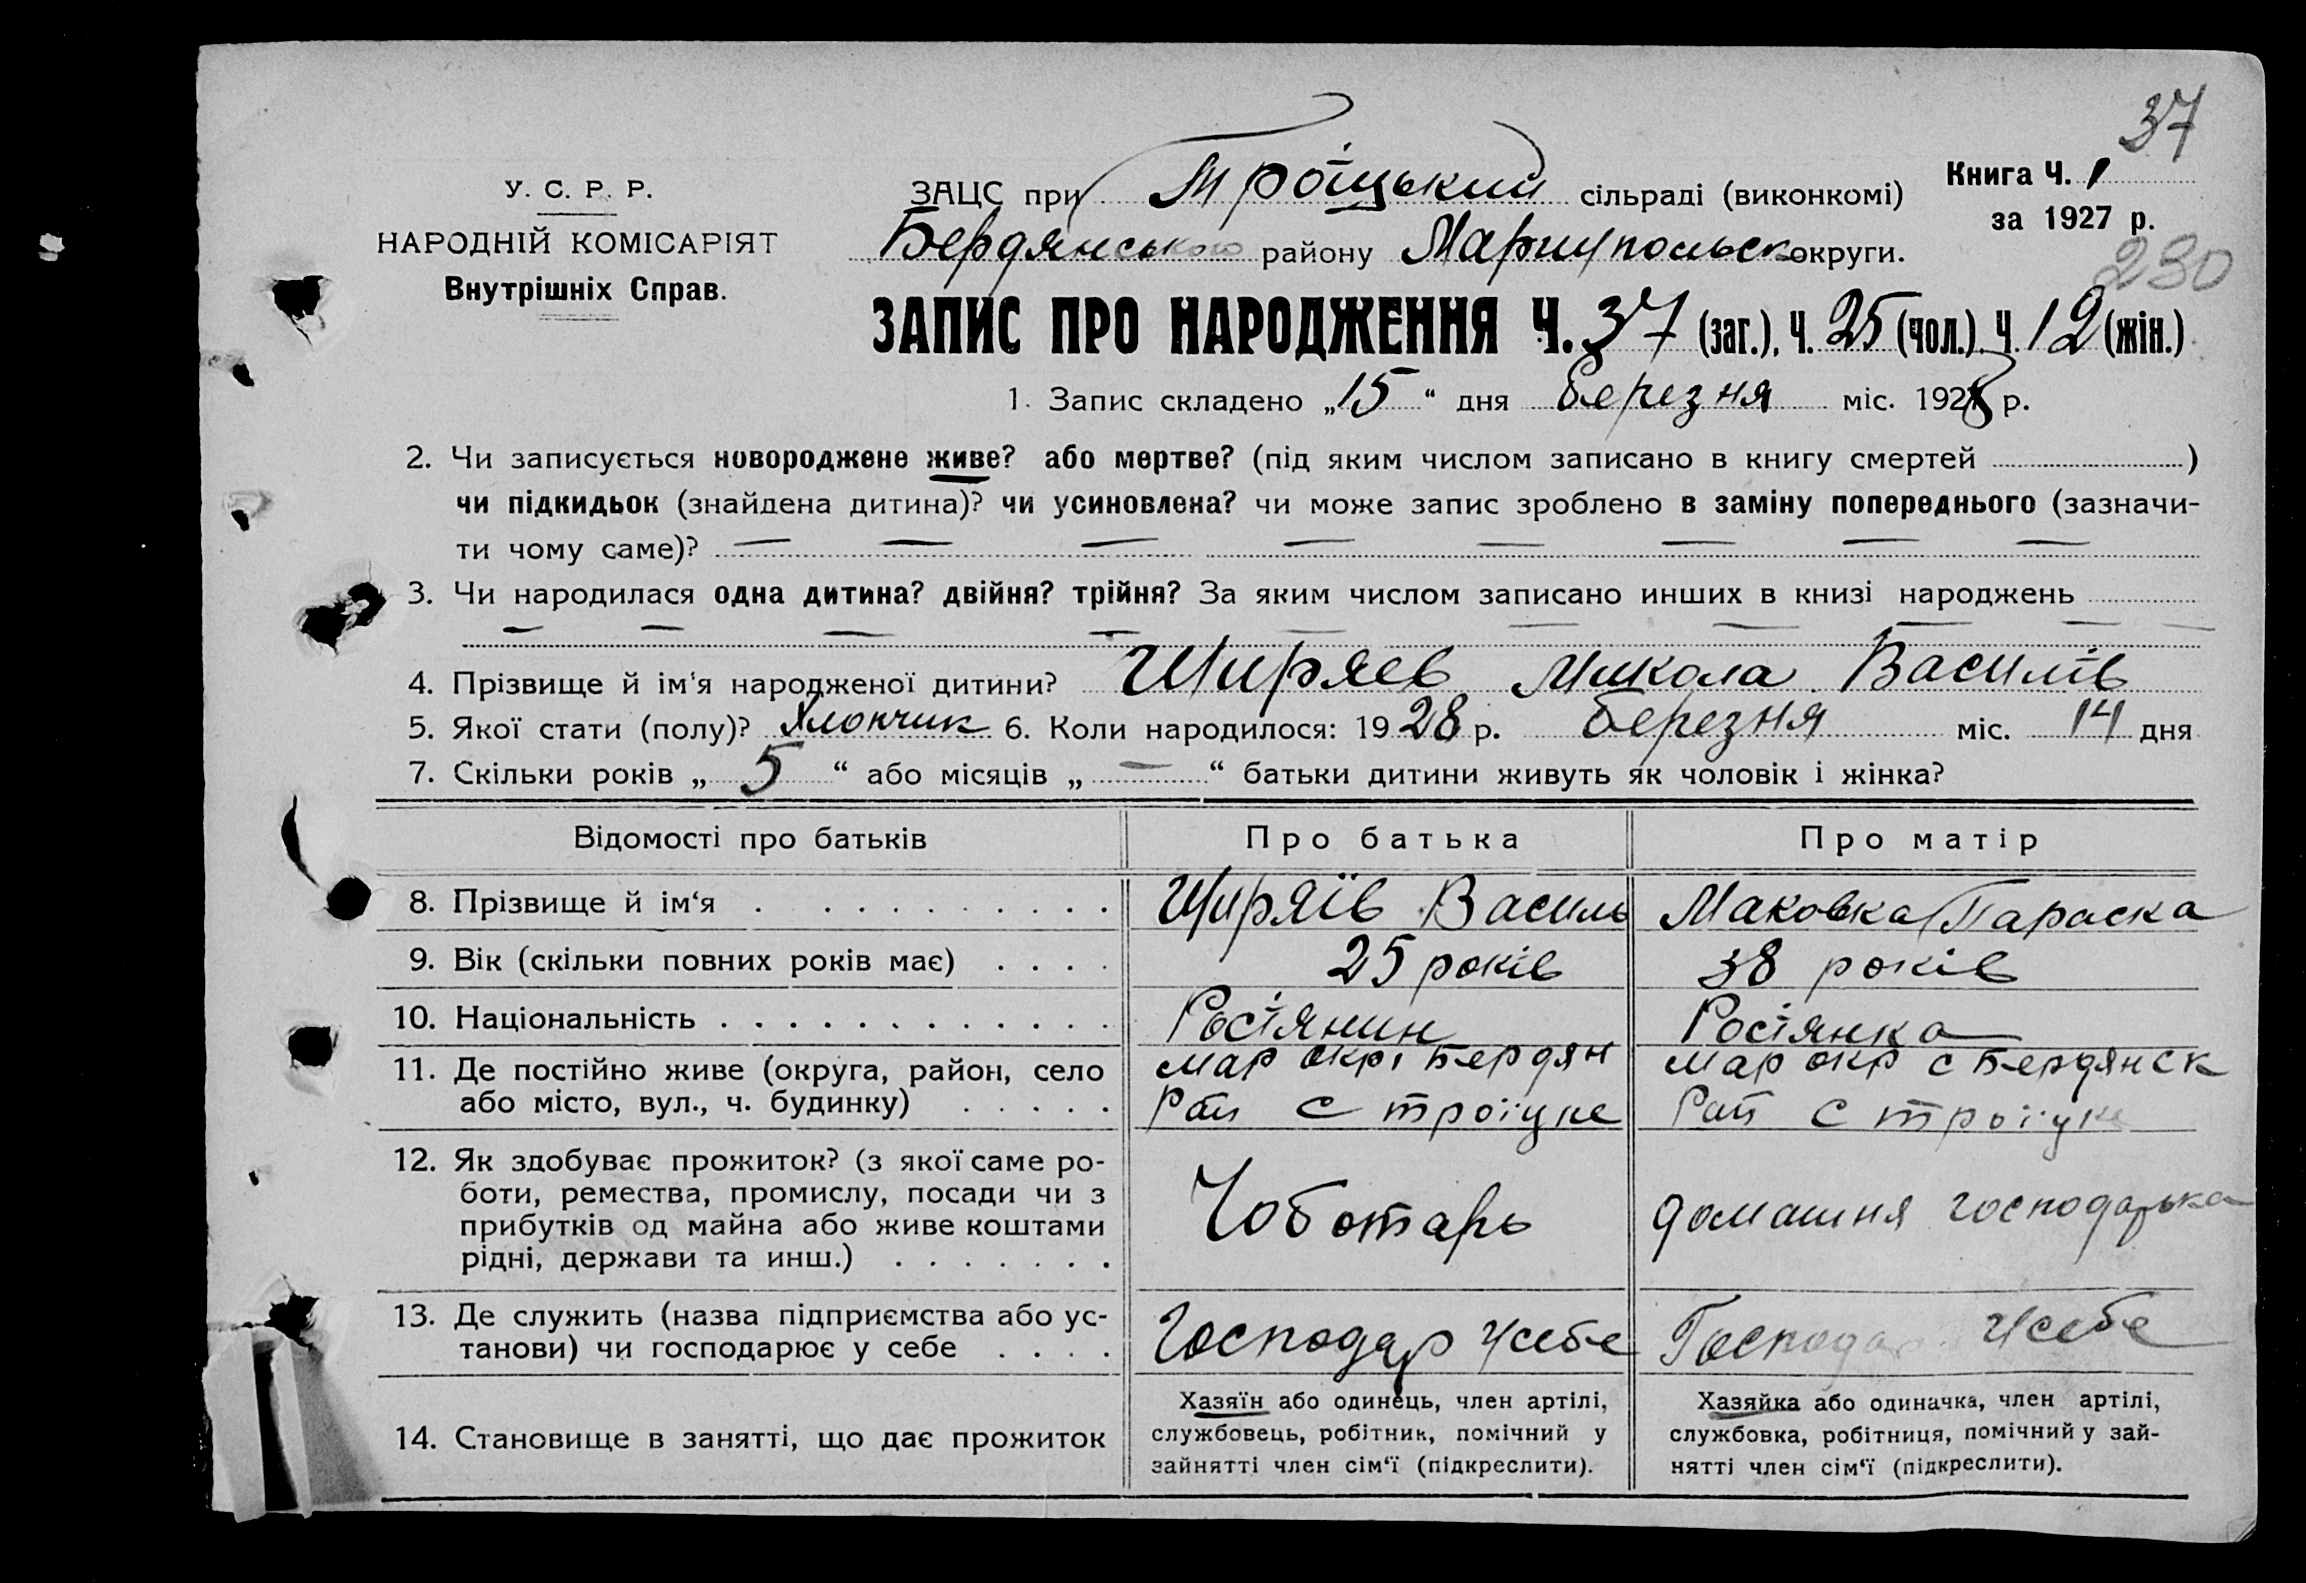 37
У. С. Р. Р.
НАРОДНІЙ КОМІСАРІЯТ
Внутрішніх Справ.
ЗАЦС при Троїцький сільраді (виконкомі)
Бердянського району Маріупольськ округи.
Книга Ч. 1
за 1927 р.
230
ЗАПИС ПРО НАРОДЖЕННЯ Ч. 37 (заг.), Ч. 25 (чол.) Ч. 12 (жін.)
1. Запис складено „15“ дня Березня міс. 1928 р.
2. Чи записується новороджене живе? або мертве? (під яким числом записано в книгу смертей )
чи підкидьок (знайдена дитина)? чи усиновлена? чи може запис зроблено в заміну попереднього (зазначи-
ти чому саме)? — — — — — — — —
3. Чи народилася одна дитина? двійня? трійня? За яким числом записано инших в книзі народжень
— — — — — — — — — —
4. Прізвище й ім'я народженої дитини? Ширяев Микола Василів
5. Якої стати (полу)? Хлопчик 6. Коли народилося: 1928 р. Березня міс. 14 дня
7. Скільки років „ 5 “ або місяців „ — “ батьки дитини живуть як чоловік і жінка?
Відомості про батьків Про батька Про матір
8. Прізвище й ім‘я Ширяїв Василь Маковка Параска
9. Вік (скільки повних років має) 25 років 38 років
10. Національність Росіянин Росіянка
11. Де постійно живе (округа, район, село або місто, вул., ч. будинку)
Мар окрі Бердян
Рай с Троїцке
Мар окр с Бердянск
Рай с Троїцке
12. Як здобуває прожиток? (з якої саме ро-
боти, ремества, промислу, посади чи з
прибутків од майна або живе коштами
рідні, держави та инш.)
Чоботарь
домашня господарька
13. Де служить (назва підприємства або ус-
танови) чи господарює у себе
Господар усебе
Господар усебе
14. Становище в занятті, що дає прожиток
Хазяїн або одинець, член артілі,
службовець, робітник, помічний у
зайнятті член сім‘ї (підкреслити).
Хазяйка або одиначка, член артілі,
службовка, робітниця, помічний у зай-
нятті член сім‘ї (підкреслити).